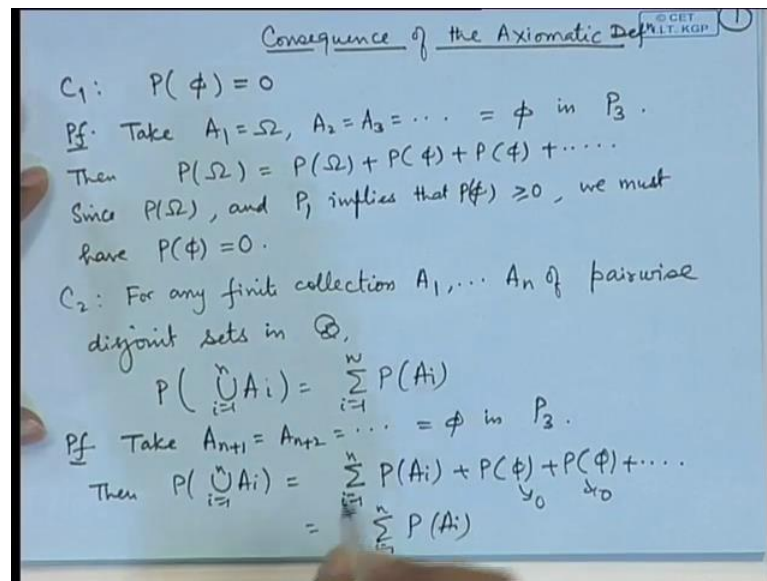 Consequence of the Axiomatic Defn
© CET
I.I.T. KGP
1
C₁: P(ϕ) = 0
Pf. Take A₁ = Ω, A₂ = A₃ = ⋯ = ϕ in P₃.
Then P(Ω) = P(Ω) + P(ϕ) + P(ϕ) + ⋯⋯
Since P(Ω), and P₁ implies that P(ϕ) ≥ 0, we must
have P(ϕ) = 0.
C₂: For any finite collection A₁, ⋯ Aₙ of pairwise
disjoint sets in ,
P(⋃ᵢ₌₁ⁿ Aᵢ) = ∑ᵢ₌₁ⁿ P(Aᵢ)
Pf Take Aₙ₊₁ = Aₙ₊₂ = ⋯ = ϕ in P₃.
Then P(⋃ᵢ₌₁ⁿ Aᵢ) = ∑ᵢ₌₁ⁿ P(Aᵢ) + P(ϕ) + P(ϕ) + ⋯⋯
0 0
= ∑ᵢ₌₁ⁿ P(Aᵢ)